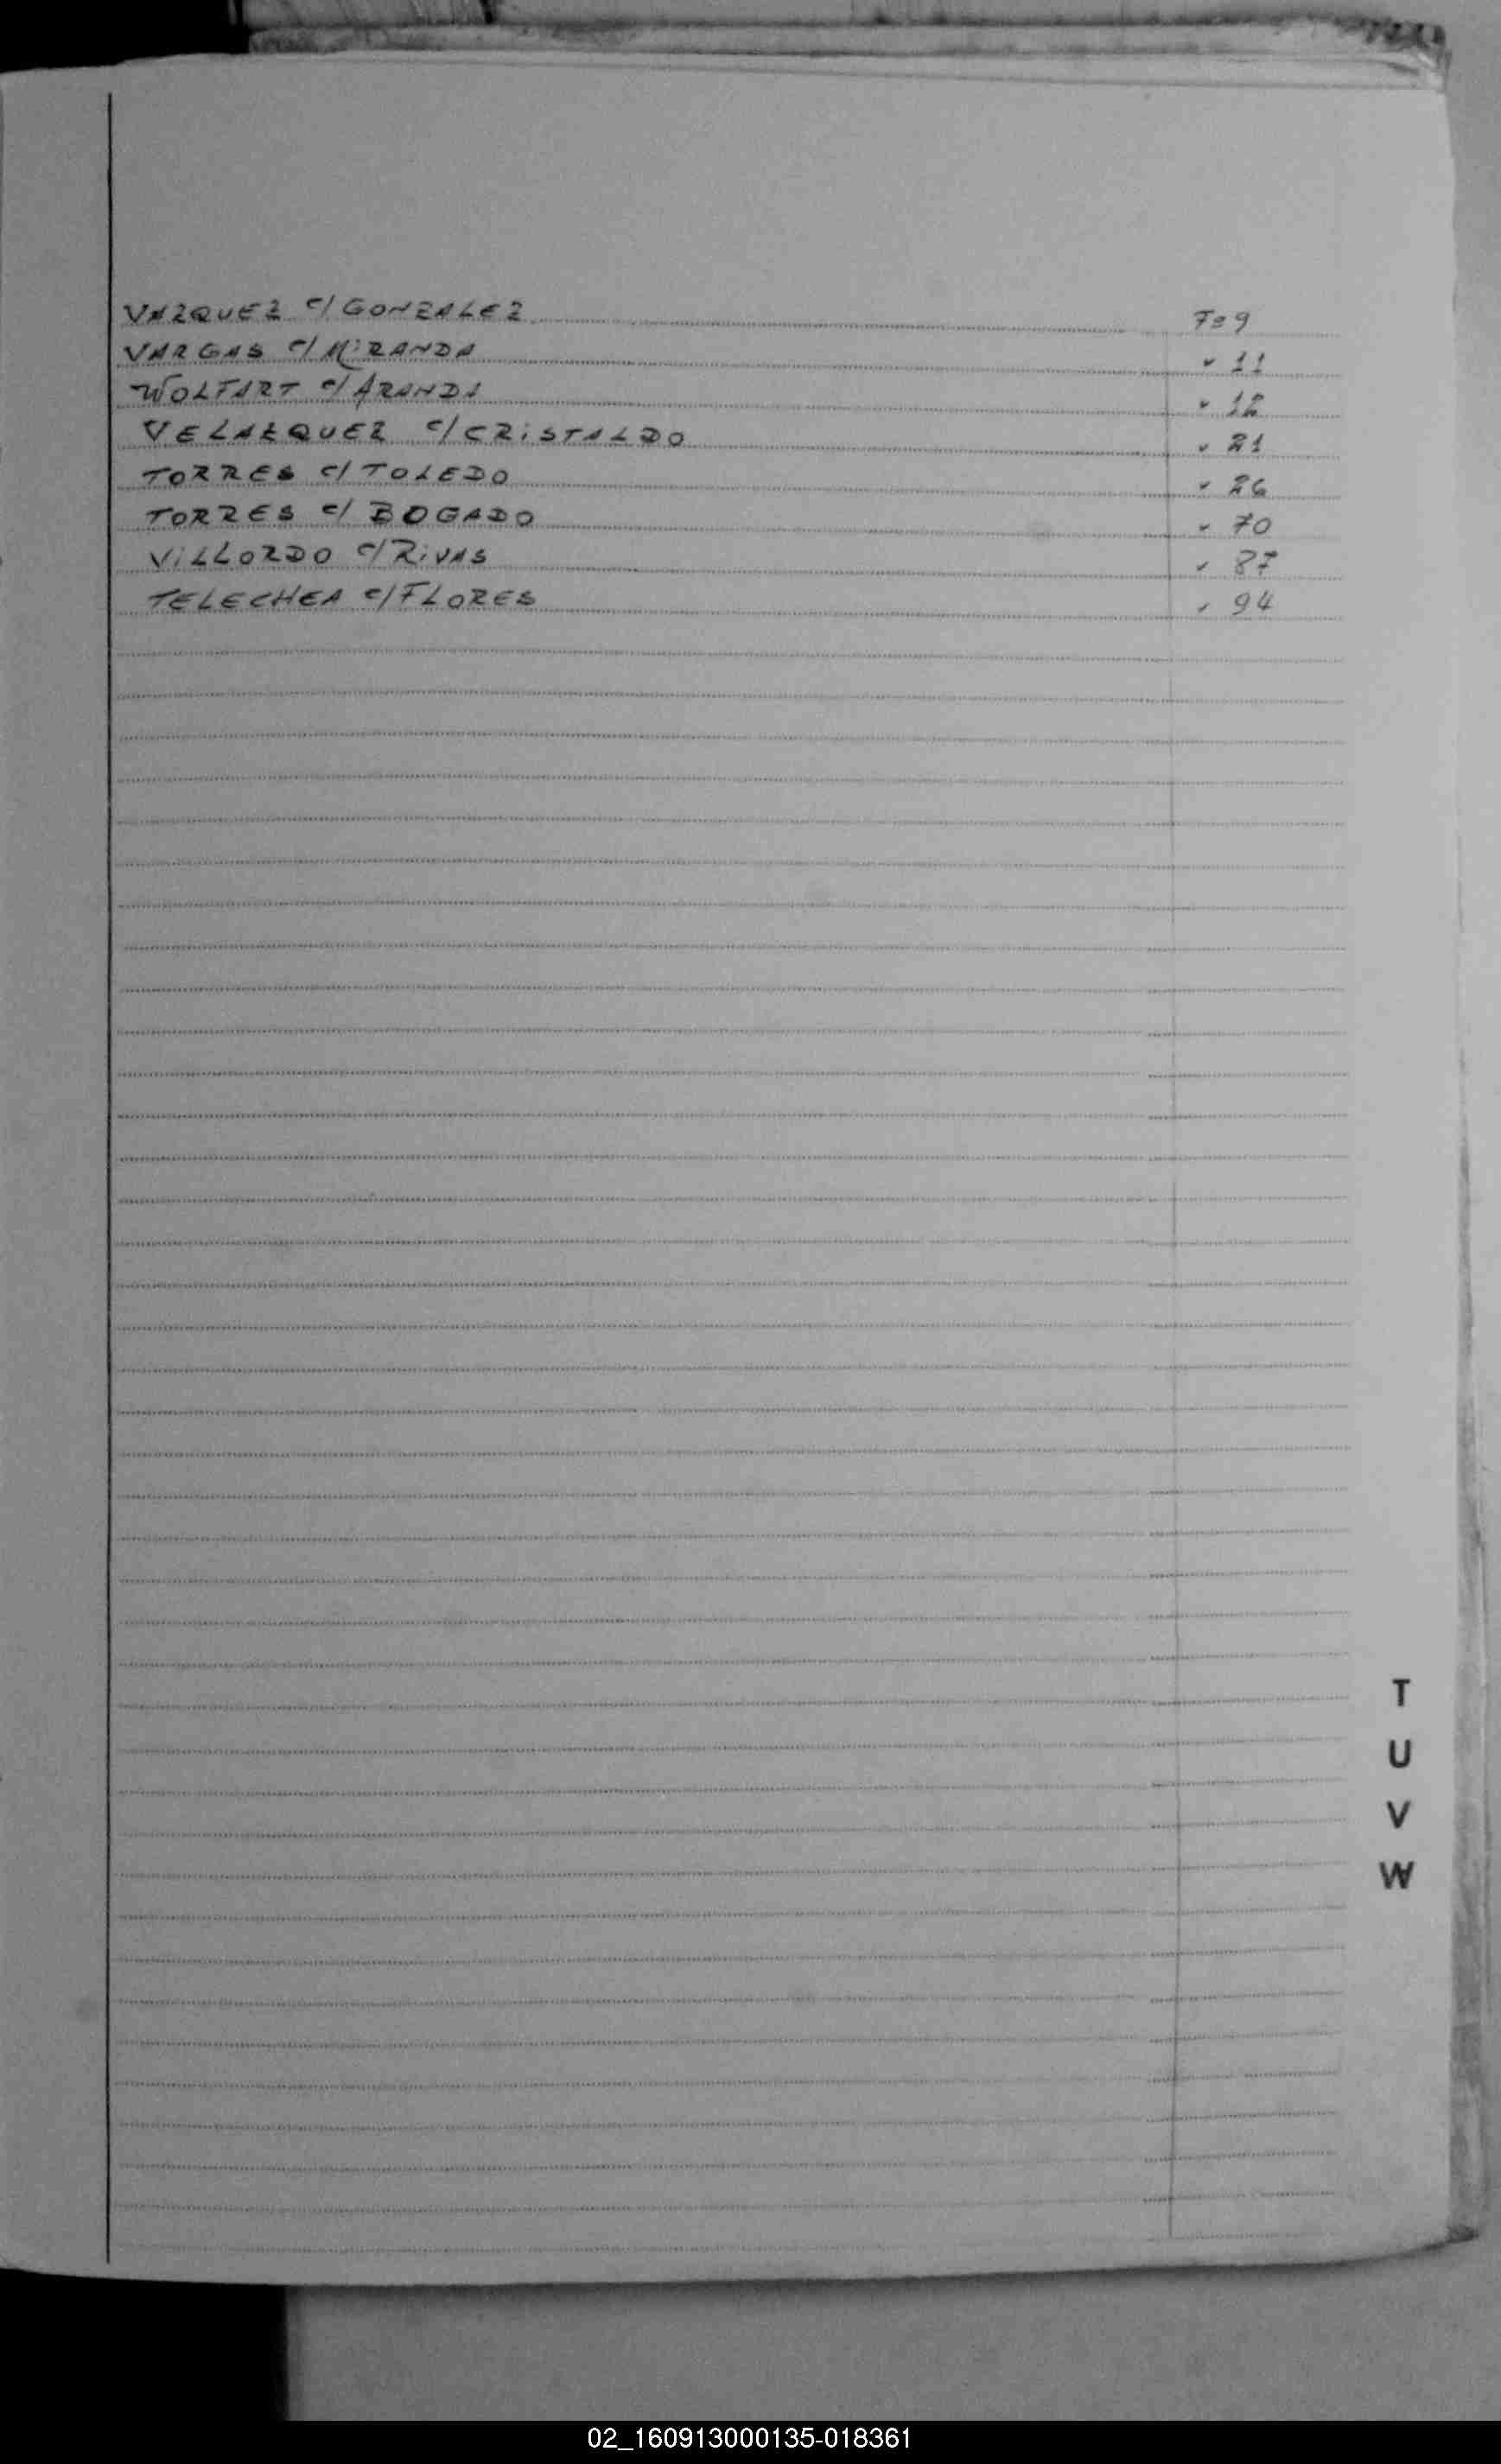 VAZQUEZ c/ GONZALEZ Fo 9
VARGAS c/ MIRANDA " 11
WOLFART c/ ARANDA " 12
VELAZQUEZ c/ CRISTALDO " 21
TORRES c/ TOLEDO " 26
TORRES c/ BOGADO " 70
VILLORDO c/ RIVAS " 87
TELECHEA c/ FLORES " 94
T
U
V
W
02_160913000135-018361